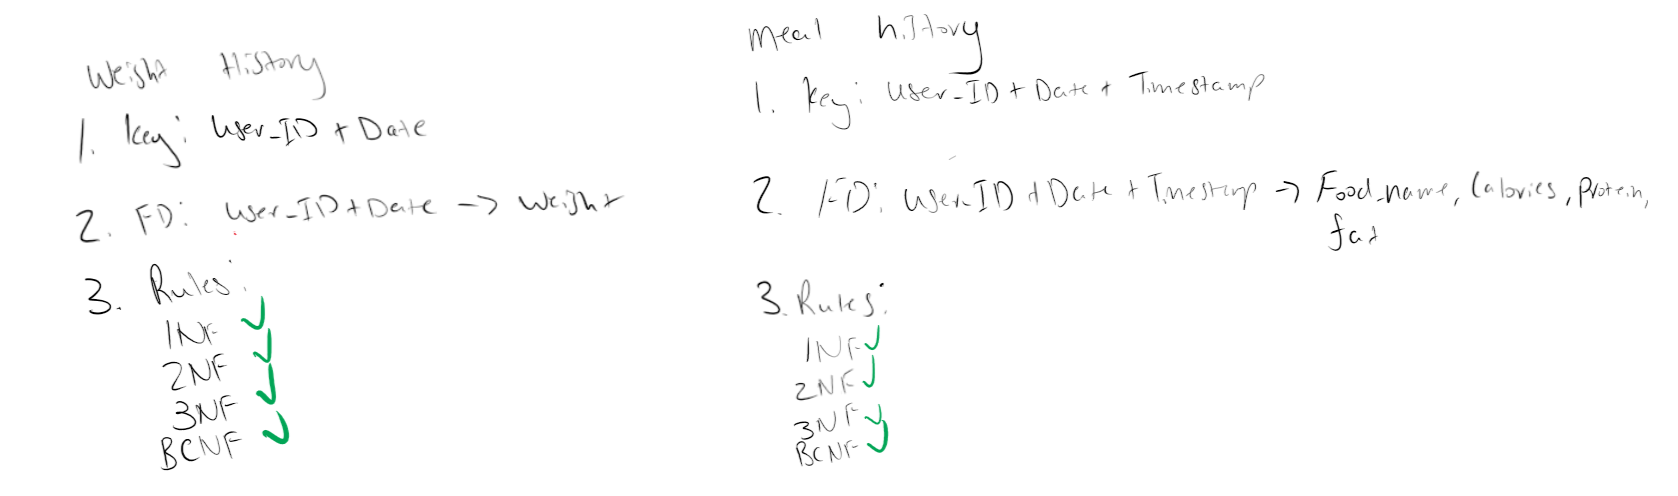 Weight History
1. Key: User_ID + Date
2. FD: User_ID + Date -> Weight
3. Rules:
1NF ✓
2NF ✓
3NF ✓
BCNF ✓
Meal history
1. Key: User_ID + Date + Timestamp
2. FD: User_ID + Date + Timestamp -> Food_name, Calories, Protein,
fat
3. Rules:
1NF ✓
2NF ✓
3NF ✓
BCNF ✓